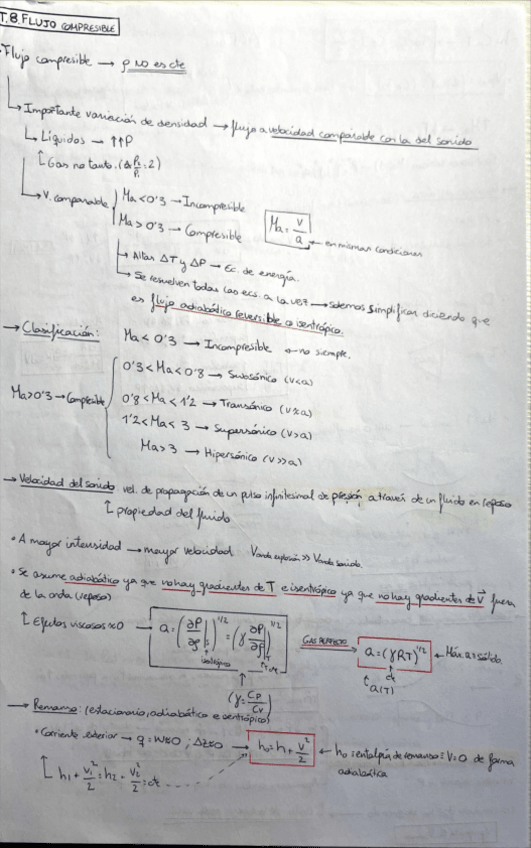 T.8. FLUJO COMPRESIBLE
Flujo compresible → ρ NO es cte
→ Importante variación de densidad → flujo a velocidad comparable con la del sonido
↳ Líquidos → ↑↑P
↳ Gas no tanto. (Δ P₂/P₁ = 2)
→ V. comparable Ma < 0'3 → Incompresible
Ma > 0'3 → Compresible Ma = V/a ← en mismas condiciones
↳ Altas ΔT y ΔP → Ec. de energía.
↳ Se resuelven todas las ecs. a la vez → solemos simplificar diciendo que
es flujo adiabático reversible o isentrópico.
→ Clasificación: Ma < 0'3 → Incompresible ← no siempre.
Ma > 0'3 → Compresible
0'3 < Ma < 0'8 → Subsónico (v<a)
0'8 < Ma < 1'2 → Transónico (v≈a)
1'2 < Ma < 3 → Supersónico (v>a)
Ma > 3 → Hipersónico (v>>a)
→ Velocidad del sonido vel. de propagación de un pulso infinitesimal de presión, a través de un fluido en reposo
↳ propiedad del fluido
• A mayor intensidad → mayor velocidad V onda explosión >> V onda sonido.
• Se asume adiabático ya que no hay gradientes de T e isentrópico ya que no hay gradientes de V⃗ fuera
de la onda (reposo)
↳ Efectos viscosos ≈ 0 → a = (∂P/∂ρ|s)^1/2 = (γ ∂P/∂ρ|T)^1/2 GAS PERFECTO → a = (γRT)^1/2 ← Máx. a = sólido.
T cte
cte
a(T)
(γ = Cp/Cv)
→ Remanso: (estacionario, adiabático e isentrópico)
• Corriente exterior → q = W ≈ 0 ; ΔZ ≈ 0 → h₀ = h + V²/2 ← h₀ = entalpía de remanso = V=0 de forma
adiabática
↳ h₁ + V₁²/2 = h₂ + V₂²/2 = cte